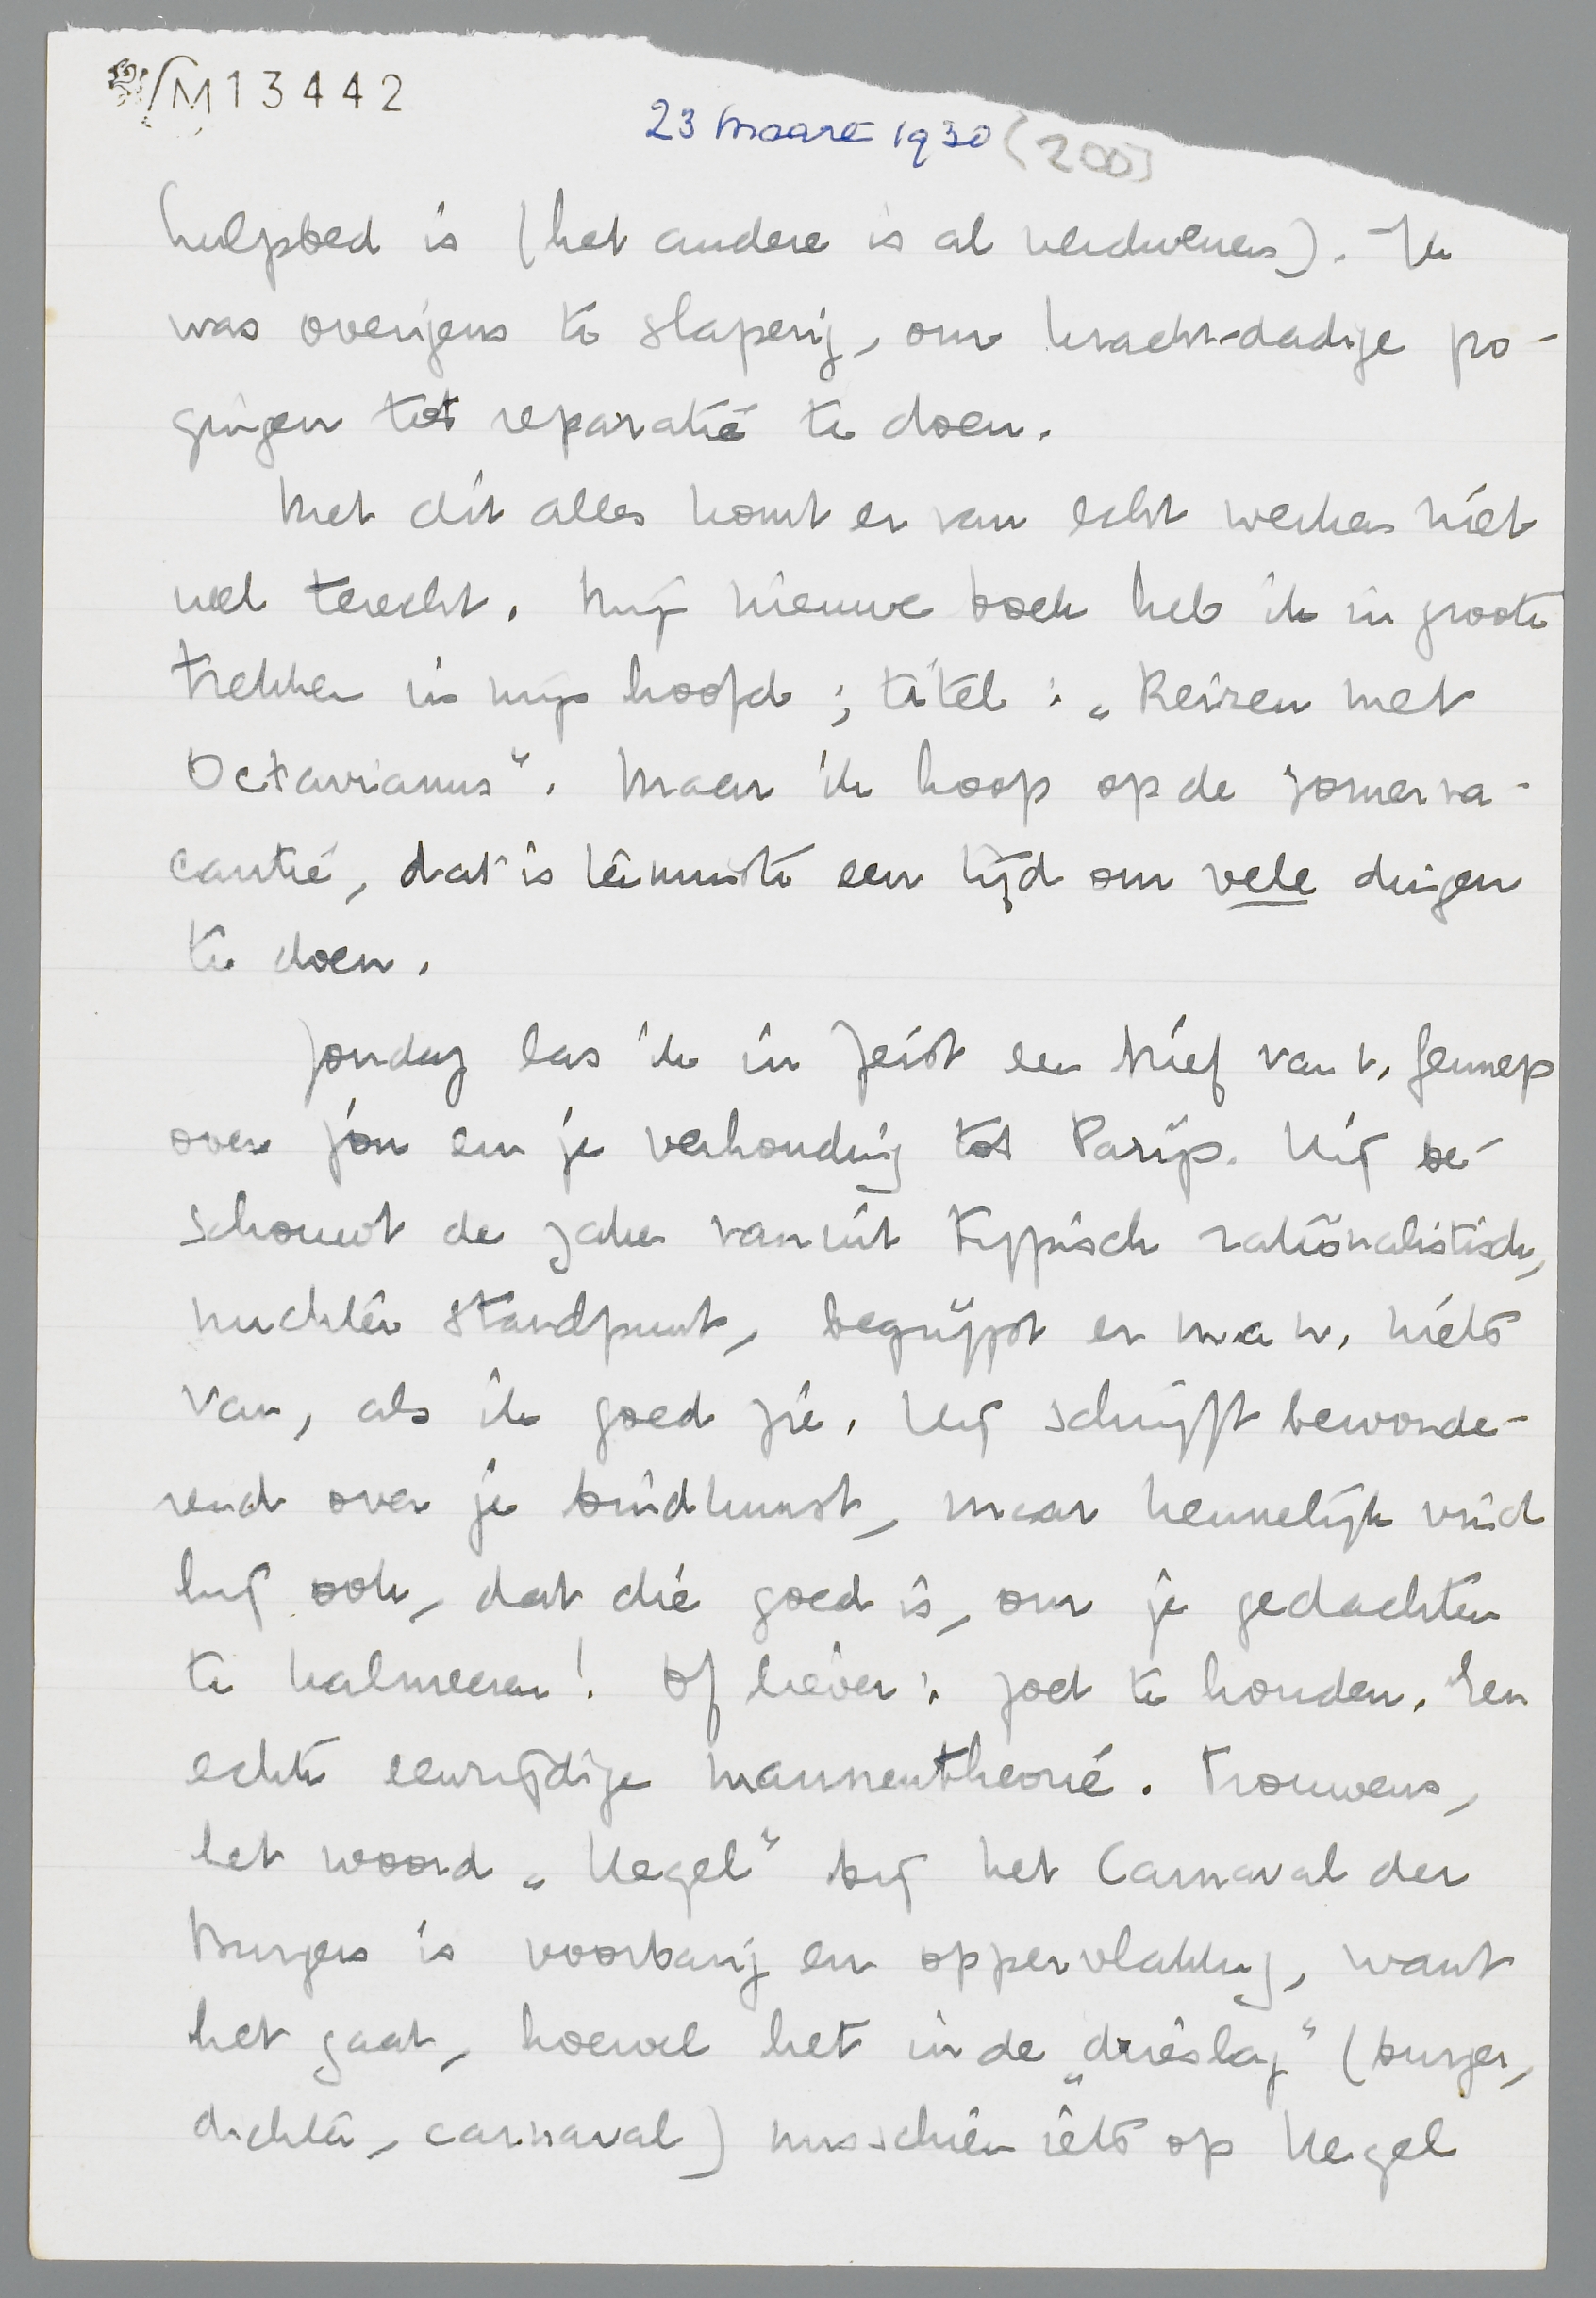 M13442
23 maart 1930 (200)
hulpbed is (het andere is al verdwenen). Ik
was overigens te slaperig, om krachtdadige po-
gingen tot reparatie te doen.
Met dit alles komt er van echt werken niet
veel terecht. Mijn nieuwe boek heb ik in groote
trekken in mijn hoofd; titel: „Reizen met
Octavianus". Maar ik hoop op de zomerva-
cantie, dat is tenminste een tijd om vele dingen
te doen.
Zondag las ik in Zeist een brief van v. Gennep
over jou en je verhouding tot Parijs. Hij be-
schouwt de zaken vanuit typisch rationalistisch,
nuchter standpunt, begrijpt er m.a.w. niets
van, als ik goed zie. Hij schrijft bewonde-
rend over je bindkunst, maar kennelijk vindt
hij ook, dat die goed is, om je gedachten
te kalmeeren! Of liever: zoet te houden. Een
echte eenzijdige mannentheorie. Trouwens,
het woord „Hegel" bij het Carnaval der
Burgers is voorbarig en oppervlakkig, want
het gaat, hoewel het in de „drieslag" (burger,
dichter, carnaval) misschien iets op Hegel